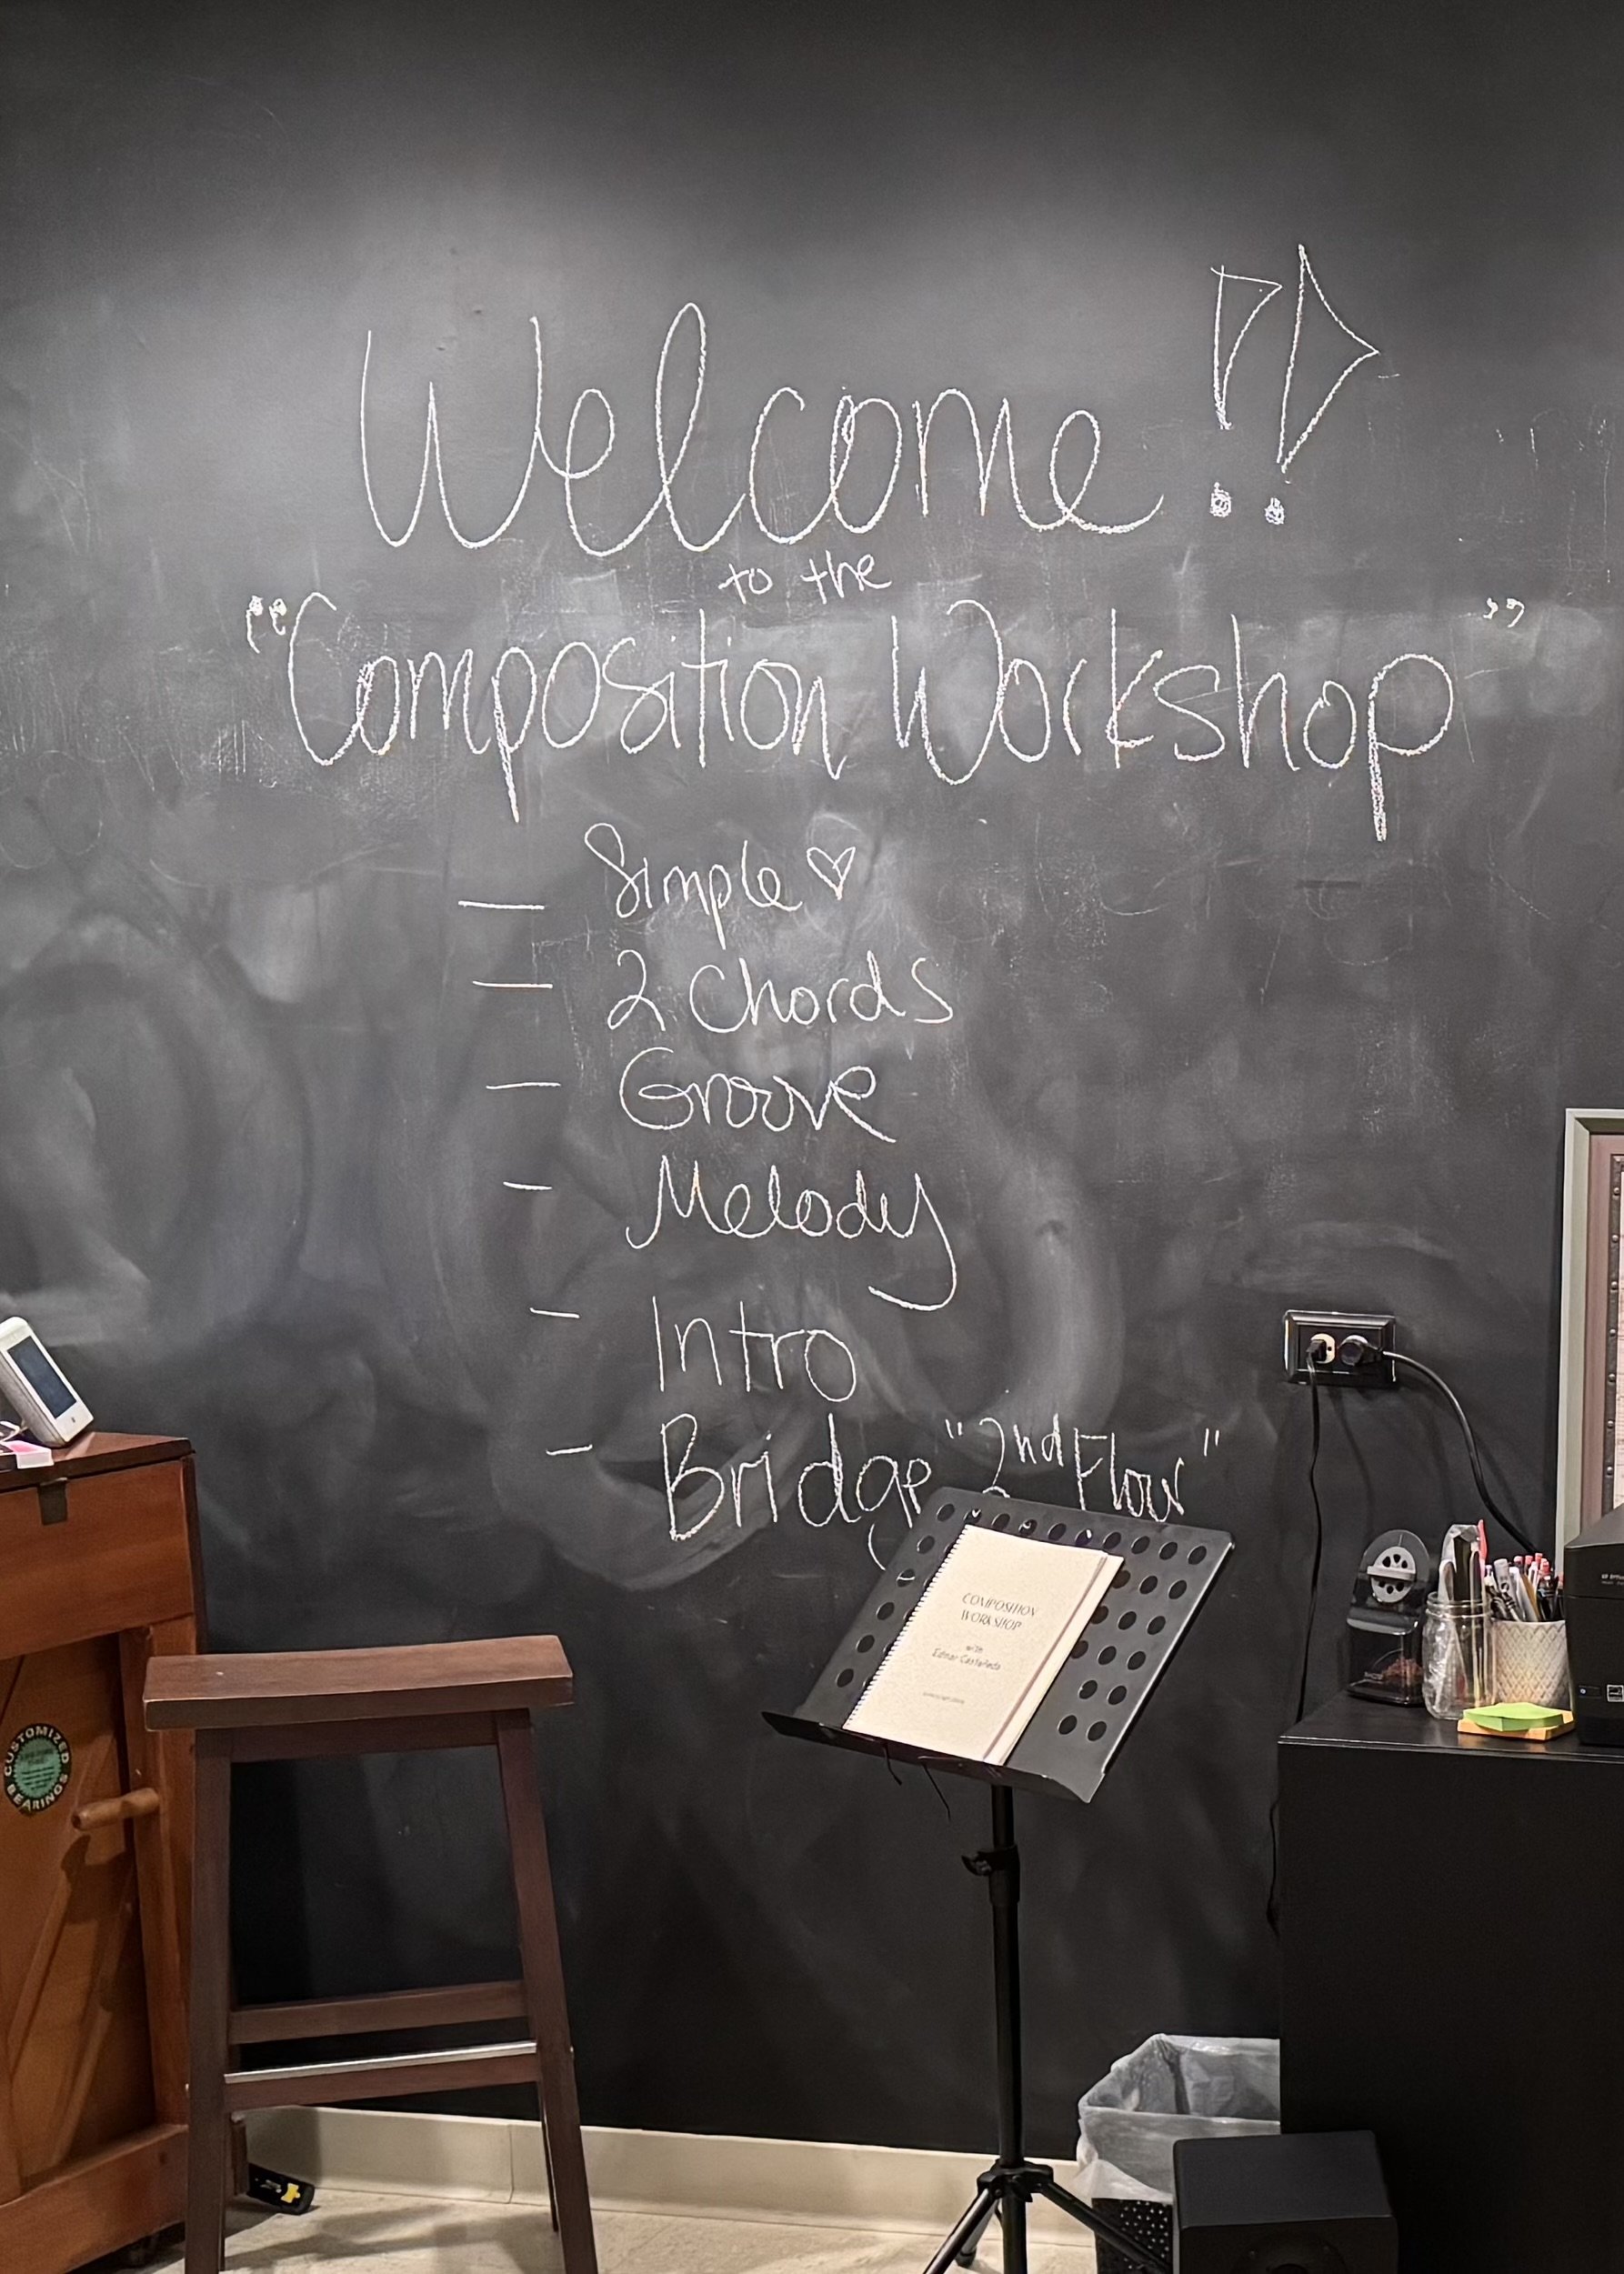 Welcome!!
to the
"Composition Workshop"
— Simple ♡
— 2 Chords
— Groove
— Melody
— Intro
— Bridge "2nd Flow"
COMPOSITION
WORKSHOP
with
Edmar Castañeda
CUSTOMIZED
BEARINGS